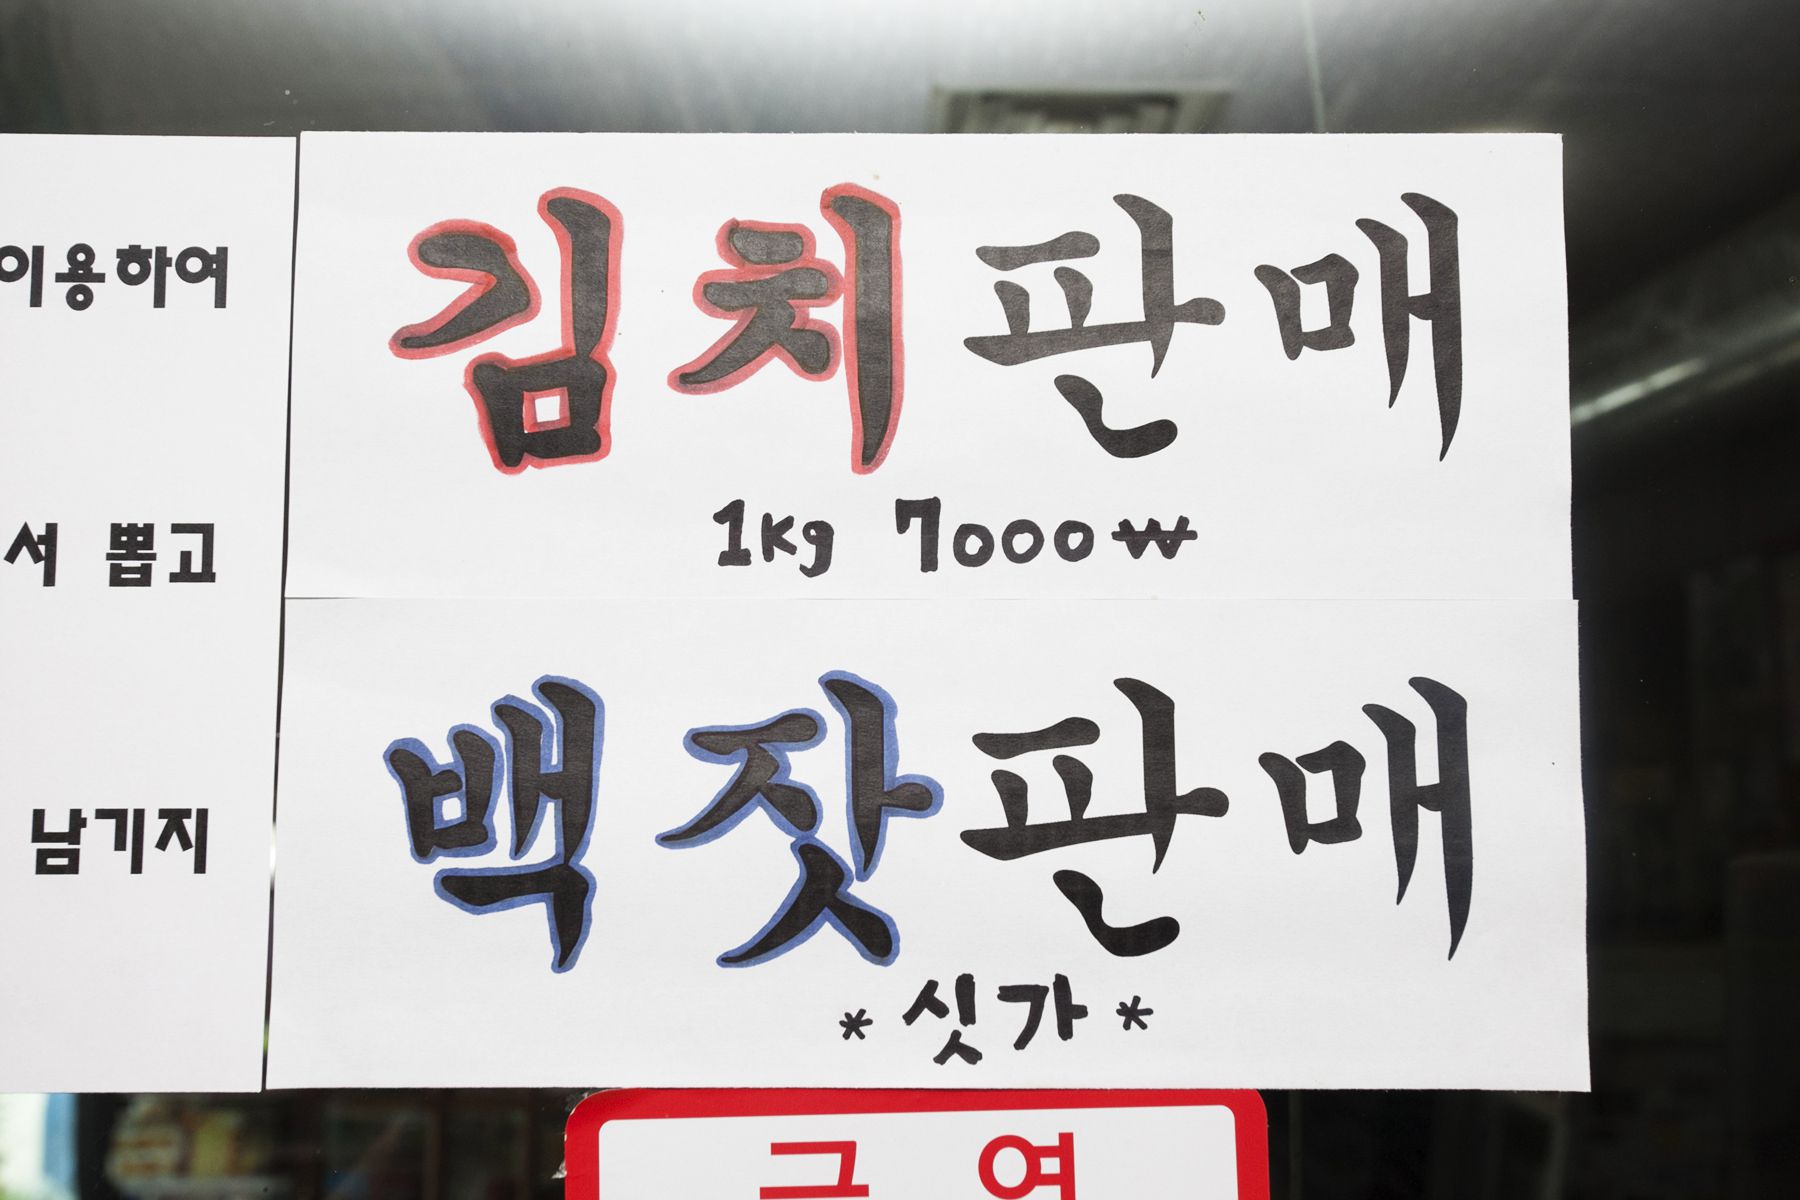 이용하여
서 뽑고
남기지
김치판매
1kg 7000₩
백잣판매
*싯가*